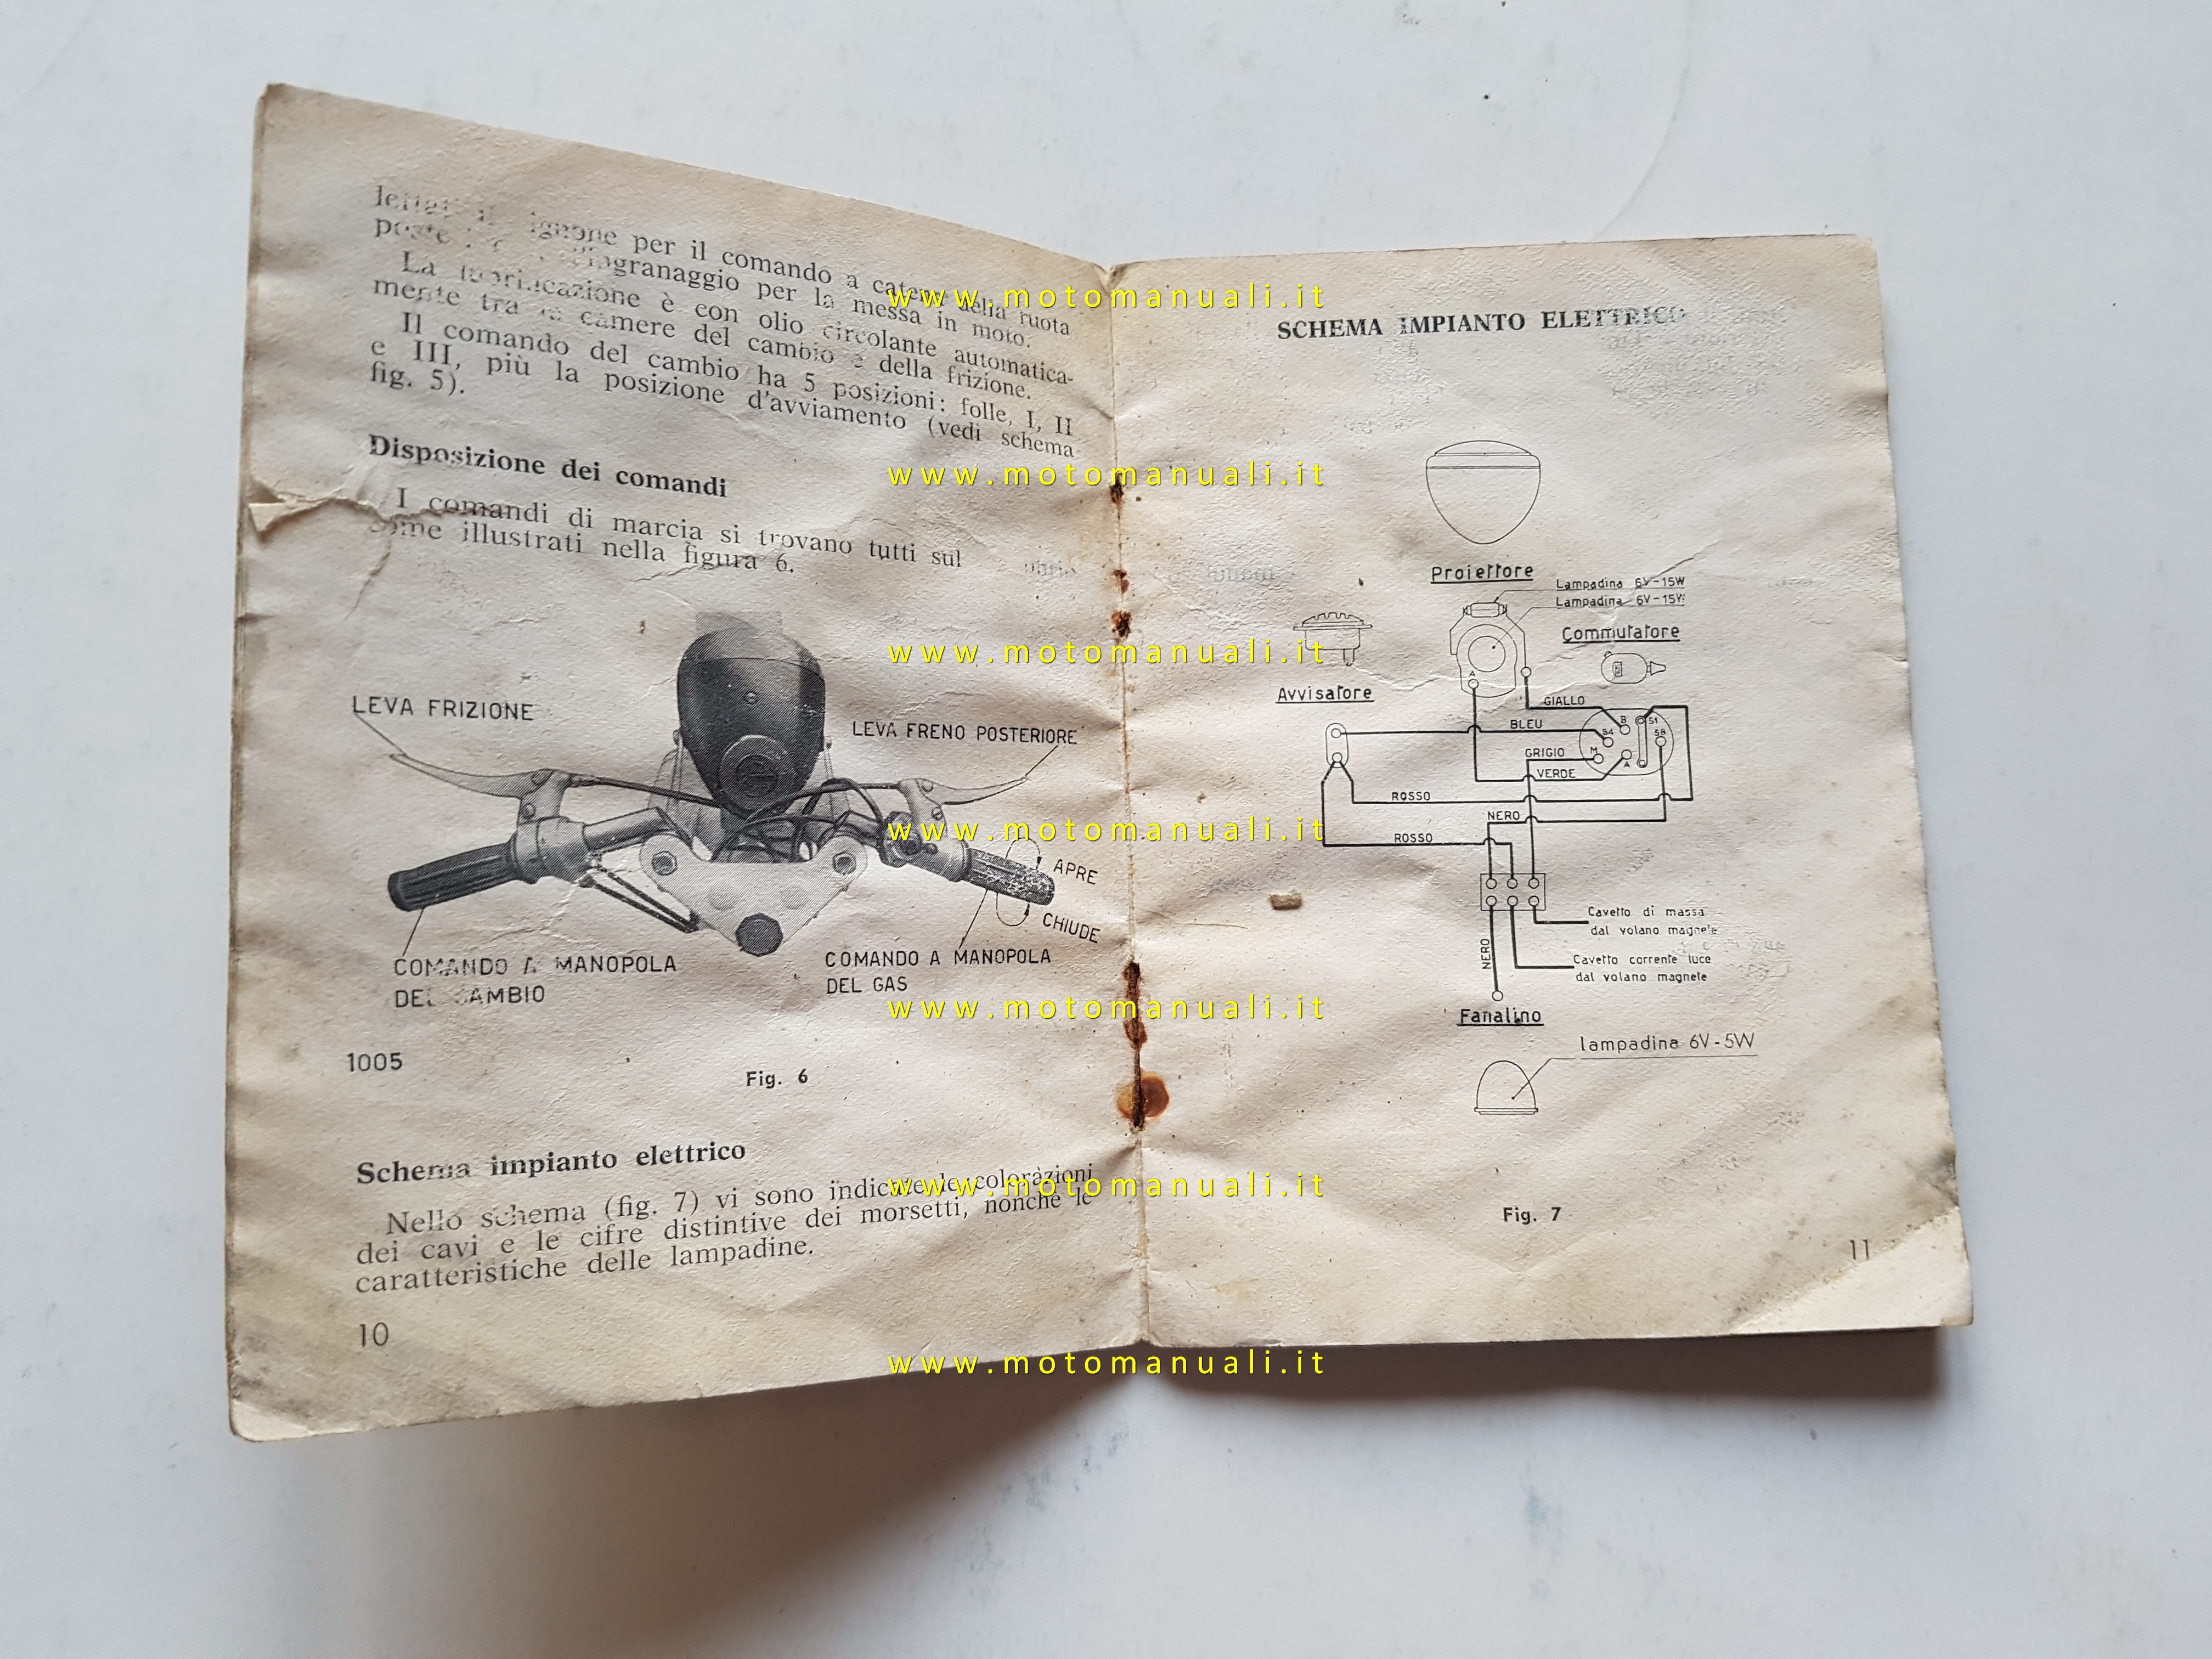 ignone per il comando a catena della ruota
ingranaggio per la messa in moto.
La lubrificazione è con olio circolante automatica-
mente tra le camere del cambio e della frizione.
Il comando del cambio ha 5 posizioni: folle, I, II
e III, più la posizione d'avviamento (vedi schema
fig. 5).
Disposizione dei comandi
I comandi di marcia si trovano tutti sul
come illustrati nella figura 6.
LEVA FRIZIONE
LEVA FRENO POSTERIORE
APRE
CHIUDE
COMANDO A MANOPOLA
DEL CAMBIO
COMANDO A MANOPOLA
DEL GAS
1005
Fig. 6
Schema impianto elettrico
Nello schema (fig. 7) vi sono indicate le colorazioni
dei cavi e le cifre distintive dei morsetti, nonchè le
caratteristiche delle lampadine.
10
SCHEMA IMPIANTO ELETTRICO
Proiettore
Lampadina 6V-15W
Lampadina 6V-15W
Commutatore
Avvisatore
A
GIALLO
BLEU
GRIGIO
VERDE
B
51
54
58
M
A
ROSSO
NERO
ROSSO
Cavetto di massa
dal volano magnete
NERO
Cavetto corrente luce
dal volano magnete
Fanalino
lampadina 6V-5W
Fig. 7
11
www.motomanuali.it
www.motomanuali.it
www.motomanuali.it
www.motomanuali.it
www.motomanuali.it
www.motomanuali.it
www.motomanuali.it